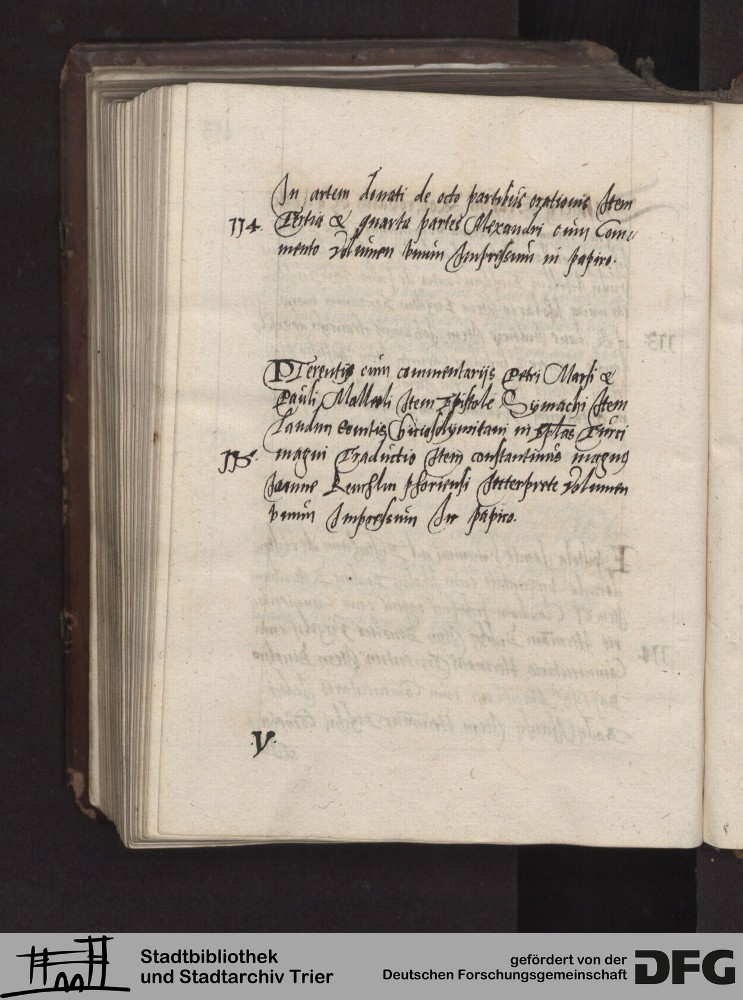 In artem donati de octo partibus orationis Item
114. Tertia & quarta partes Alexandri cum Com
mento volumen unum Impressum in papiro.
PTerentiꝰ cum commentarijs Petri Marsi &
Pauli Malleoli Item Epistole Symachi Item
Laudini Comitis Hierosolymitani in Ep̅las Turci
115. magni Traductio Item constantinus magnꝰ
Joanne Reuchlin phorcensi Jnterprete volumen
unum Impressum In papiro.
V.
Stadtbibliothek
und Stadtarchiv Trier
gefördert von der
Deutschen Forschungsgemeinschaft
DFG